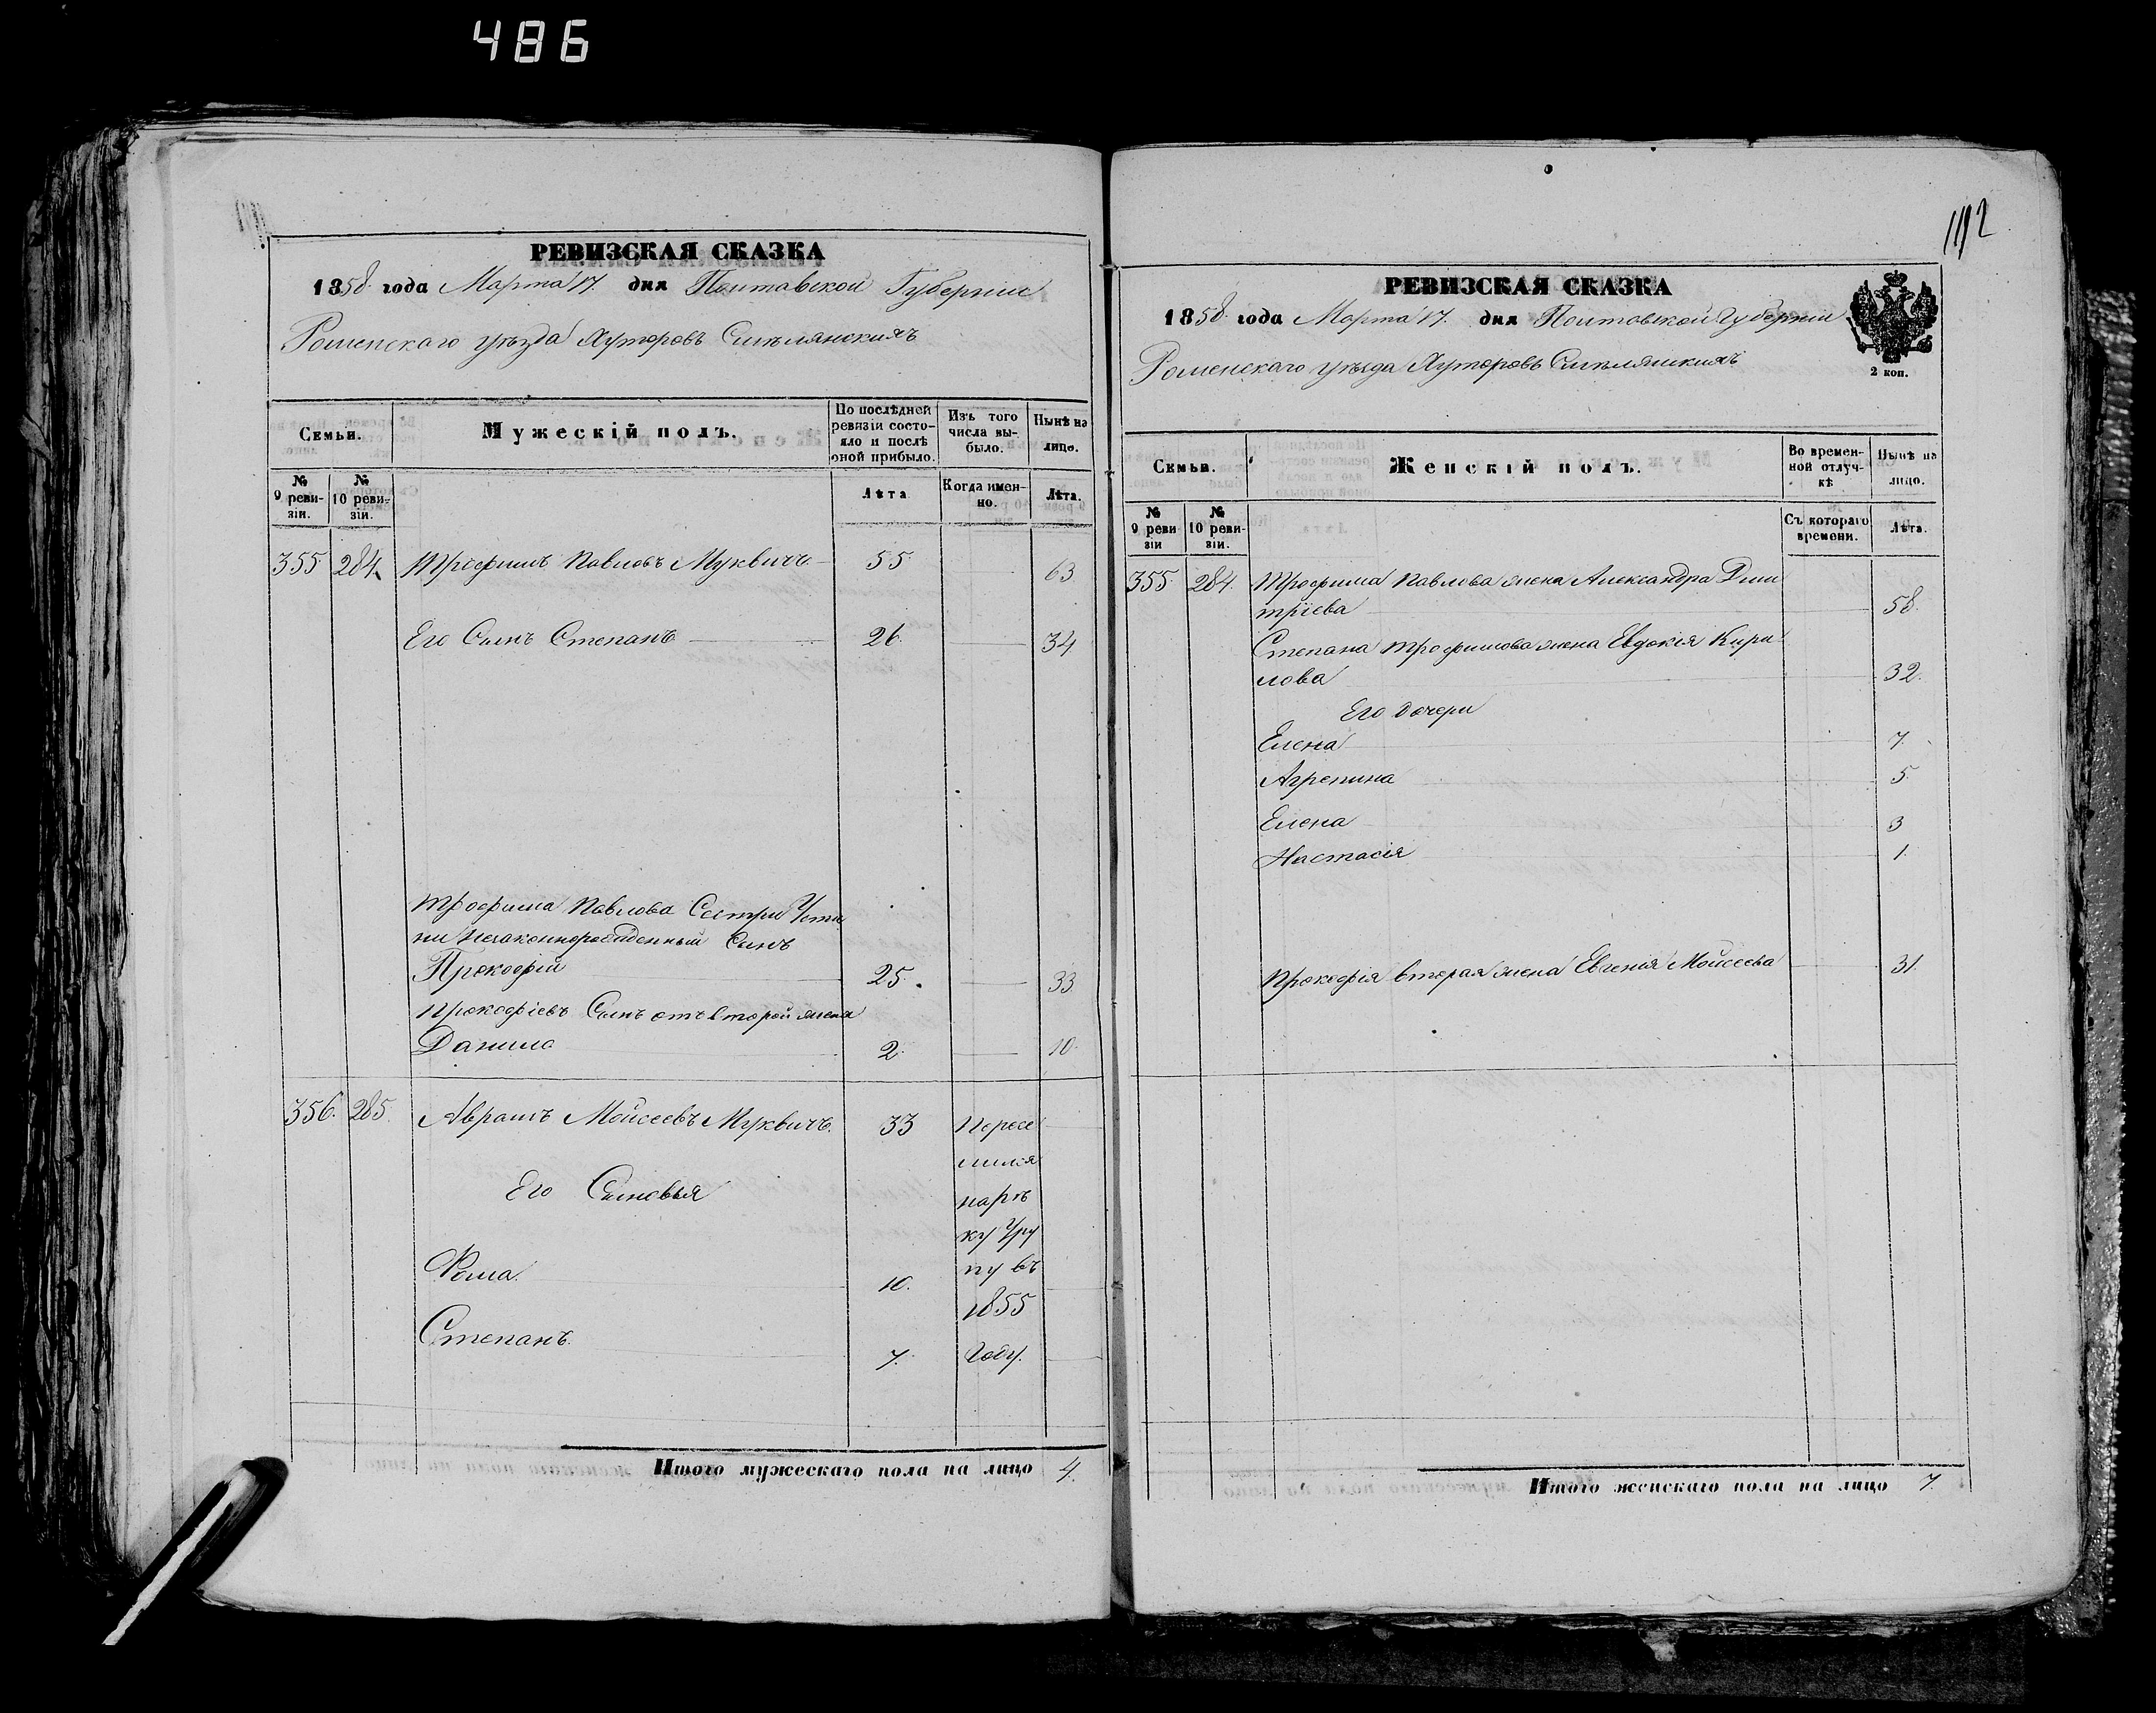 486
РЕВИЗСКАЯ СКАЗКА
1858 года Марта 17. дня Полтавской Губерніи
Роменскаго уѣзда Хуторовъ Смѣлянскихъ
Семьи.
Мужескій полъ.
По послѣдней ревизіи состояло и послѣ оной прибыло.
Изъ того числа выбыло.
Нынѣ на лицо.
№ 9 ревизіи.
№ 10 ревизіи.
Лѣта
Когда именно.
Лѣта.
355 284. Трофимъ Павловъ Муквичъ 55 63
Его Сынъ Степанъ 26. 34
Трофима Павлова Сестри Усти
ни незаконнорожденный Сынъ
Прокофій 25. 33
Прокофіевъ Сынъ отъ второй жены
Данило 2. 10.
356. 285. Аврамъ Мойсеевъ Муквичъ. 33 Пересе
лился
Его Сыновья
ку Гру
Фома. 10. пу въ
1855
Степанъ. 7. Году.
Итого мужескаго пола на лицо 4.
1112
РЕВИЗСКАЯ СКАЗКА
1858 года Марта 17. дня Полтавской Губерніи
Роменскаго уѣзда Хуторовъ Смѣлянскихъ
2 коп.
Семьи.
Женскій полъ.
Во временной отлучкѣ
Нынѣ на лицо.
№ 9 ревизіи
№ 10 ревизіи.
Съ котораго времени.
Лѣта.
355 284. Трофима Павлова жена Александра Дми
тріева 58.
Степана Трофимова жена Евдокія Кири
лова 32.
Его дочери
Елена 7.
Агрепина 5.
Елена 3
Настасія 1.
Прокофія вторая жена Евгенія Мойсеева 31.
Итого женскаго пола на лицо 7.